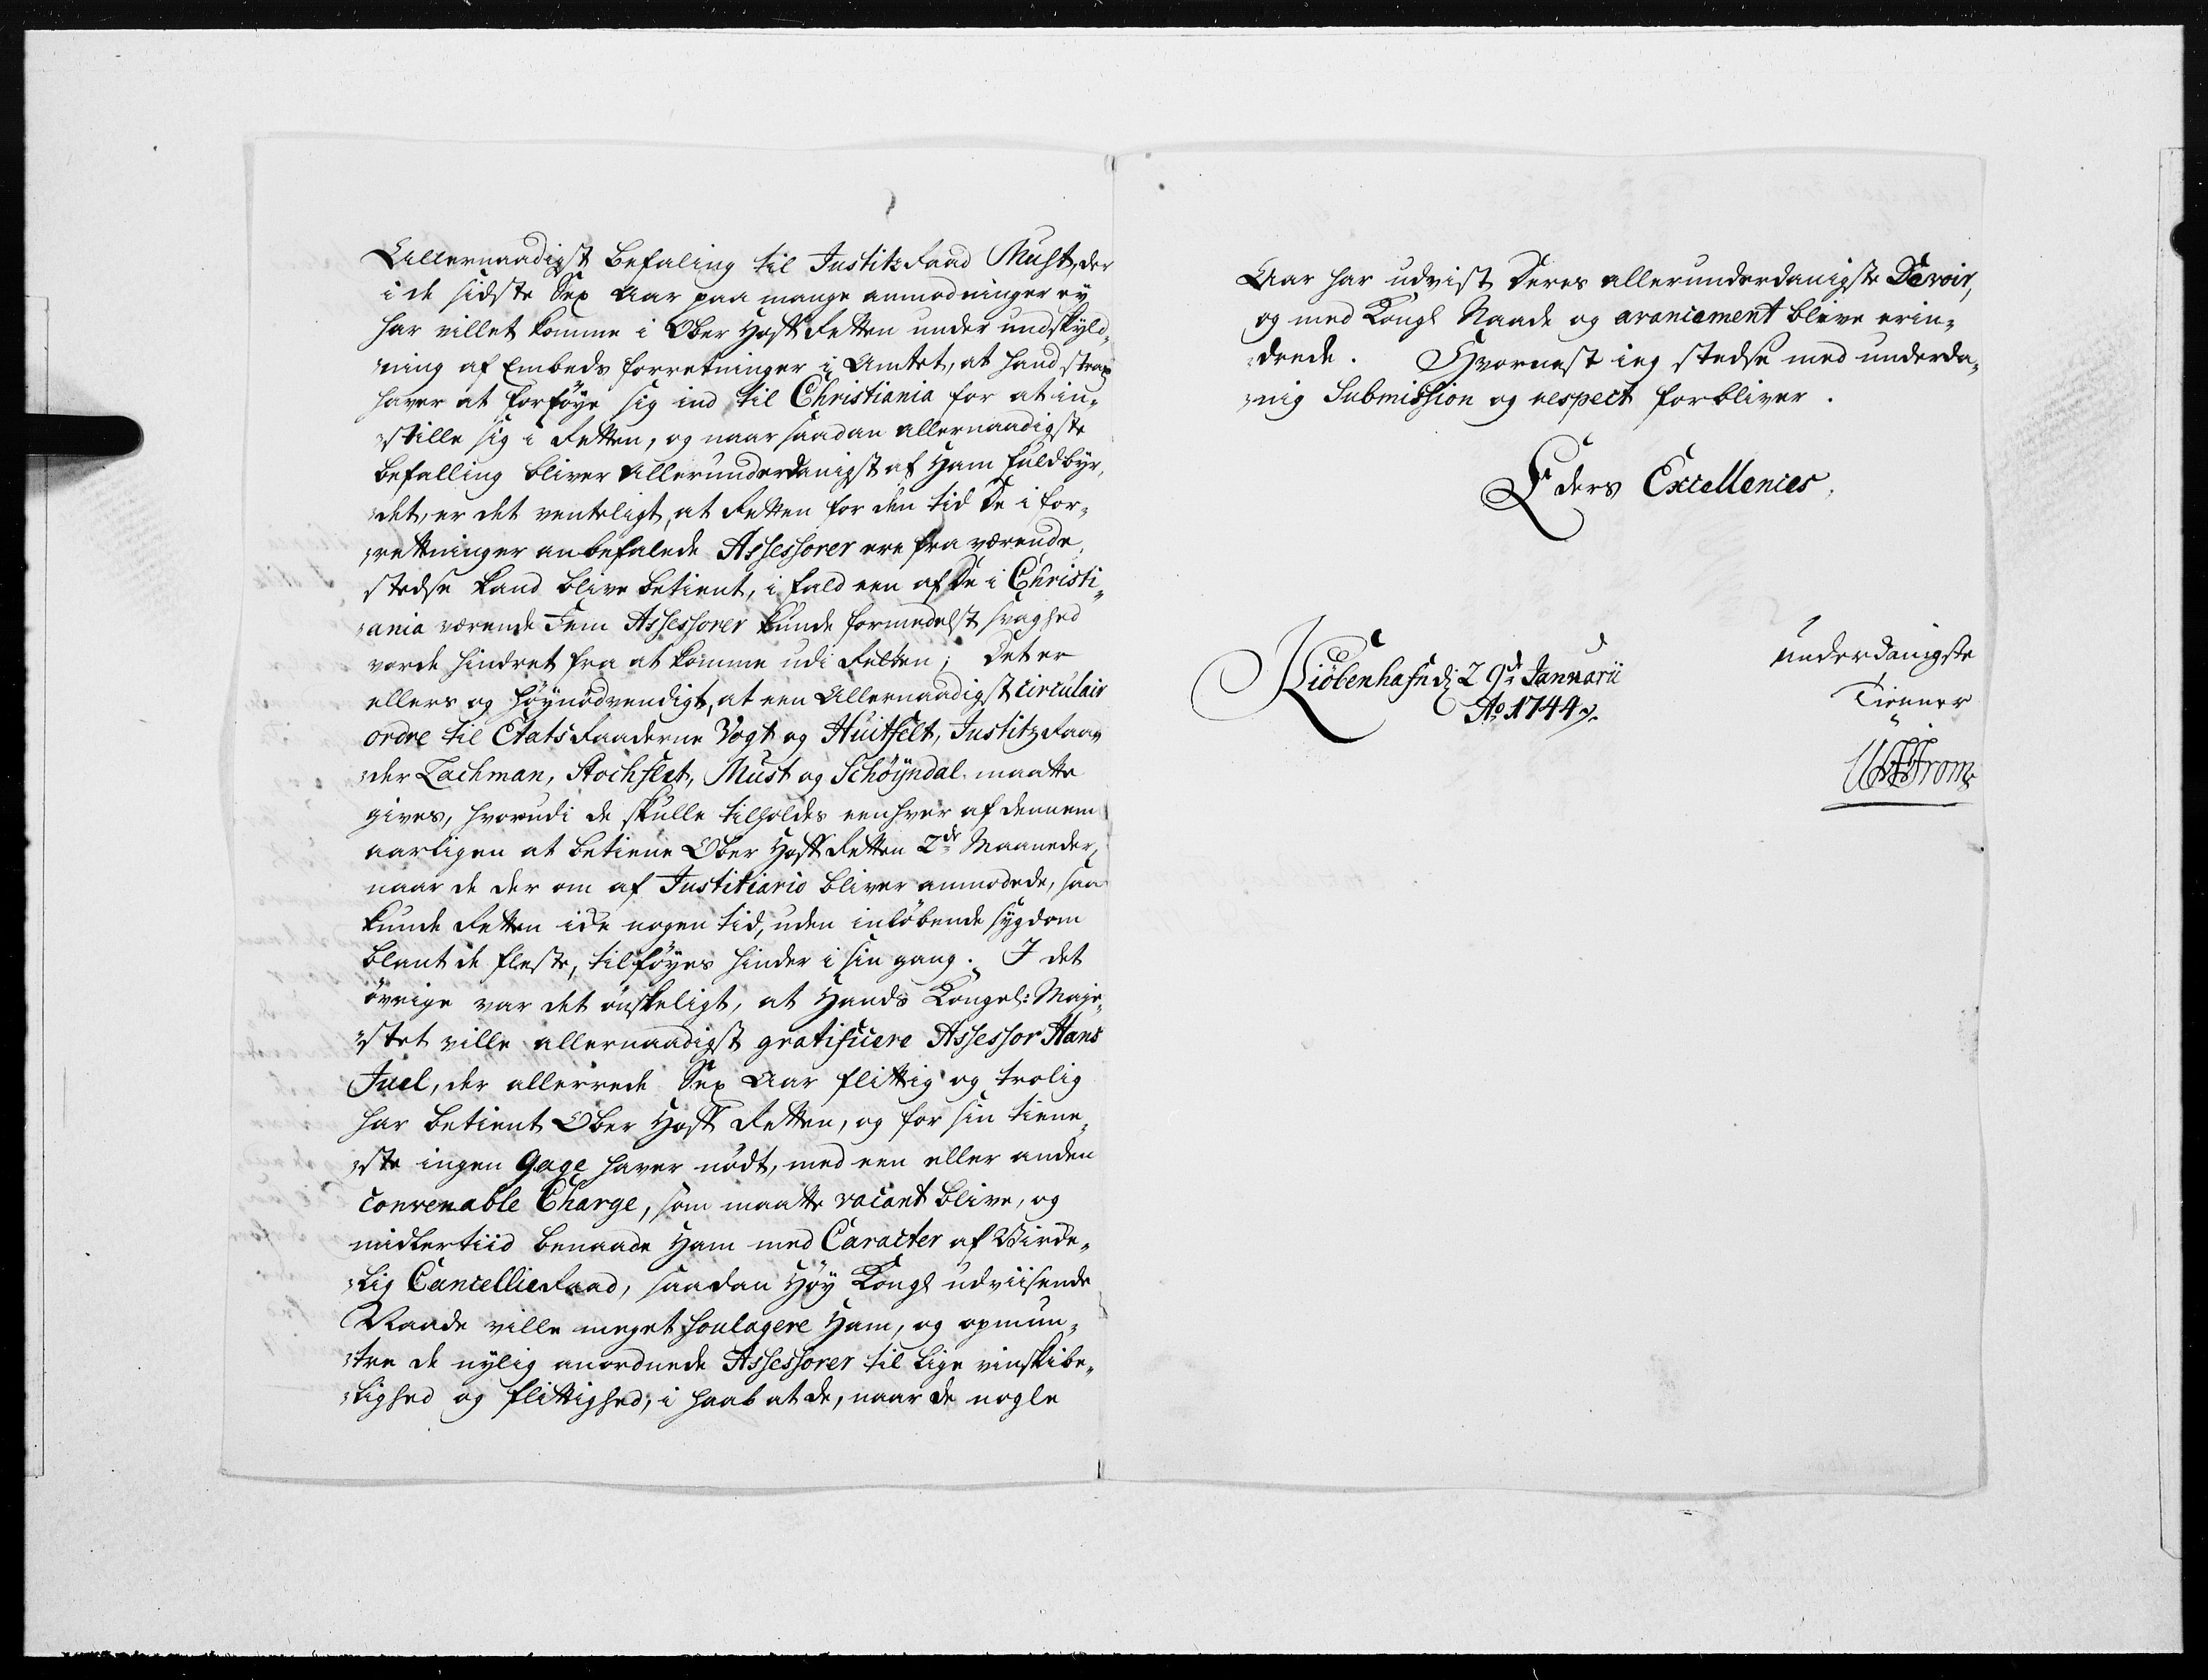 Allernaadigst befaling til Justitz Raad Must, der
i de sidste Sex Aar paa mange anmodninger ey
har villet komme i Ober Hoff Retten under undskyld„
„ning af Embeds forretninger i Amtet, at hand strax
haver at forføye sig ind til Christiania for at in„
„stille sig i Retten, og naar saadan allernaadigste
befalling bliver Allerunderdanigst af Ham fuldbyr„
„det, er det venteligt, at Retten for den tid De i for„
„rettninger anbefalede Assessorer ere fra værende,
stedse kand blive betient, i fald een af De i Christi„
„ania værende Fem Assessorer kunde formedelst svaghed
vorde hindret fra at komme udi Retten; Det er
ellers og høynødvendigt, at een Allernaadigst circulair
ordre til Etats Raaderne Vogt og Huitfelt, Justitz Raa„
„der Lachman, Stochflet, Must og Schøyndal maatte
gives, hvorudi de skulle tilholdes eenhver af dennem
aarligen at betiene Ober Hoff Retten 2de Maaneder,
naar de der om af Justitiario bliver anmodede, saa
kunde Retten icke nogen tid, uden indløbende sygdom
blant de fleste, tilføyes hinder i sin gang. I det
øvrige var det ønskeligt, at Hands Kongel: Maje„
„stet ville allernaadigst gratificere Assessor Hans
Juel, der allerrede Sex Aar flittig og trolig
har betient Ober Hoff Retten, og for sin tiene„
„ste ingen Gage haver nødt, med een eller anden
convenable Charge, som maatte vacant blive, og
midlertiid benaade Ham med Caracter af Virke„
„lig Cancellie Raad, saadan Høy Kongl udviisende
Naade ville meget soulagere Ham, og opmun„
„tre de nylig anordnede Assessorer til lige vinskibe„
„lighed og flittighed, i haab at de, naar de nogle
Aar har udvist Deres allerunderdanigste Devoir,
og med Kongl Naade og avancement blive erin„
„drede. Hvornest ieg stedse med underda„
„nig Submission og respect forbliver.
Eders Excellences
Kiøbenhafn d: 29de Januarii
Ao 1744
underdanigste
Tienner